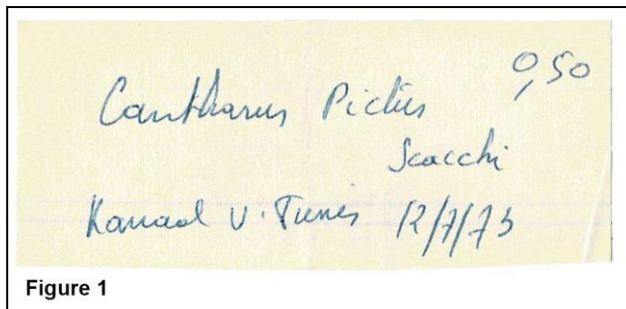 0,50
Cantharus Pictus
Scacchi
Kanaal v. Tunis 12/7/73
Figure 1